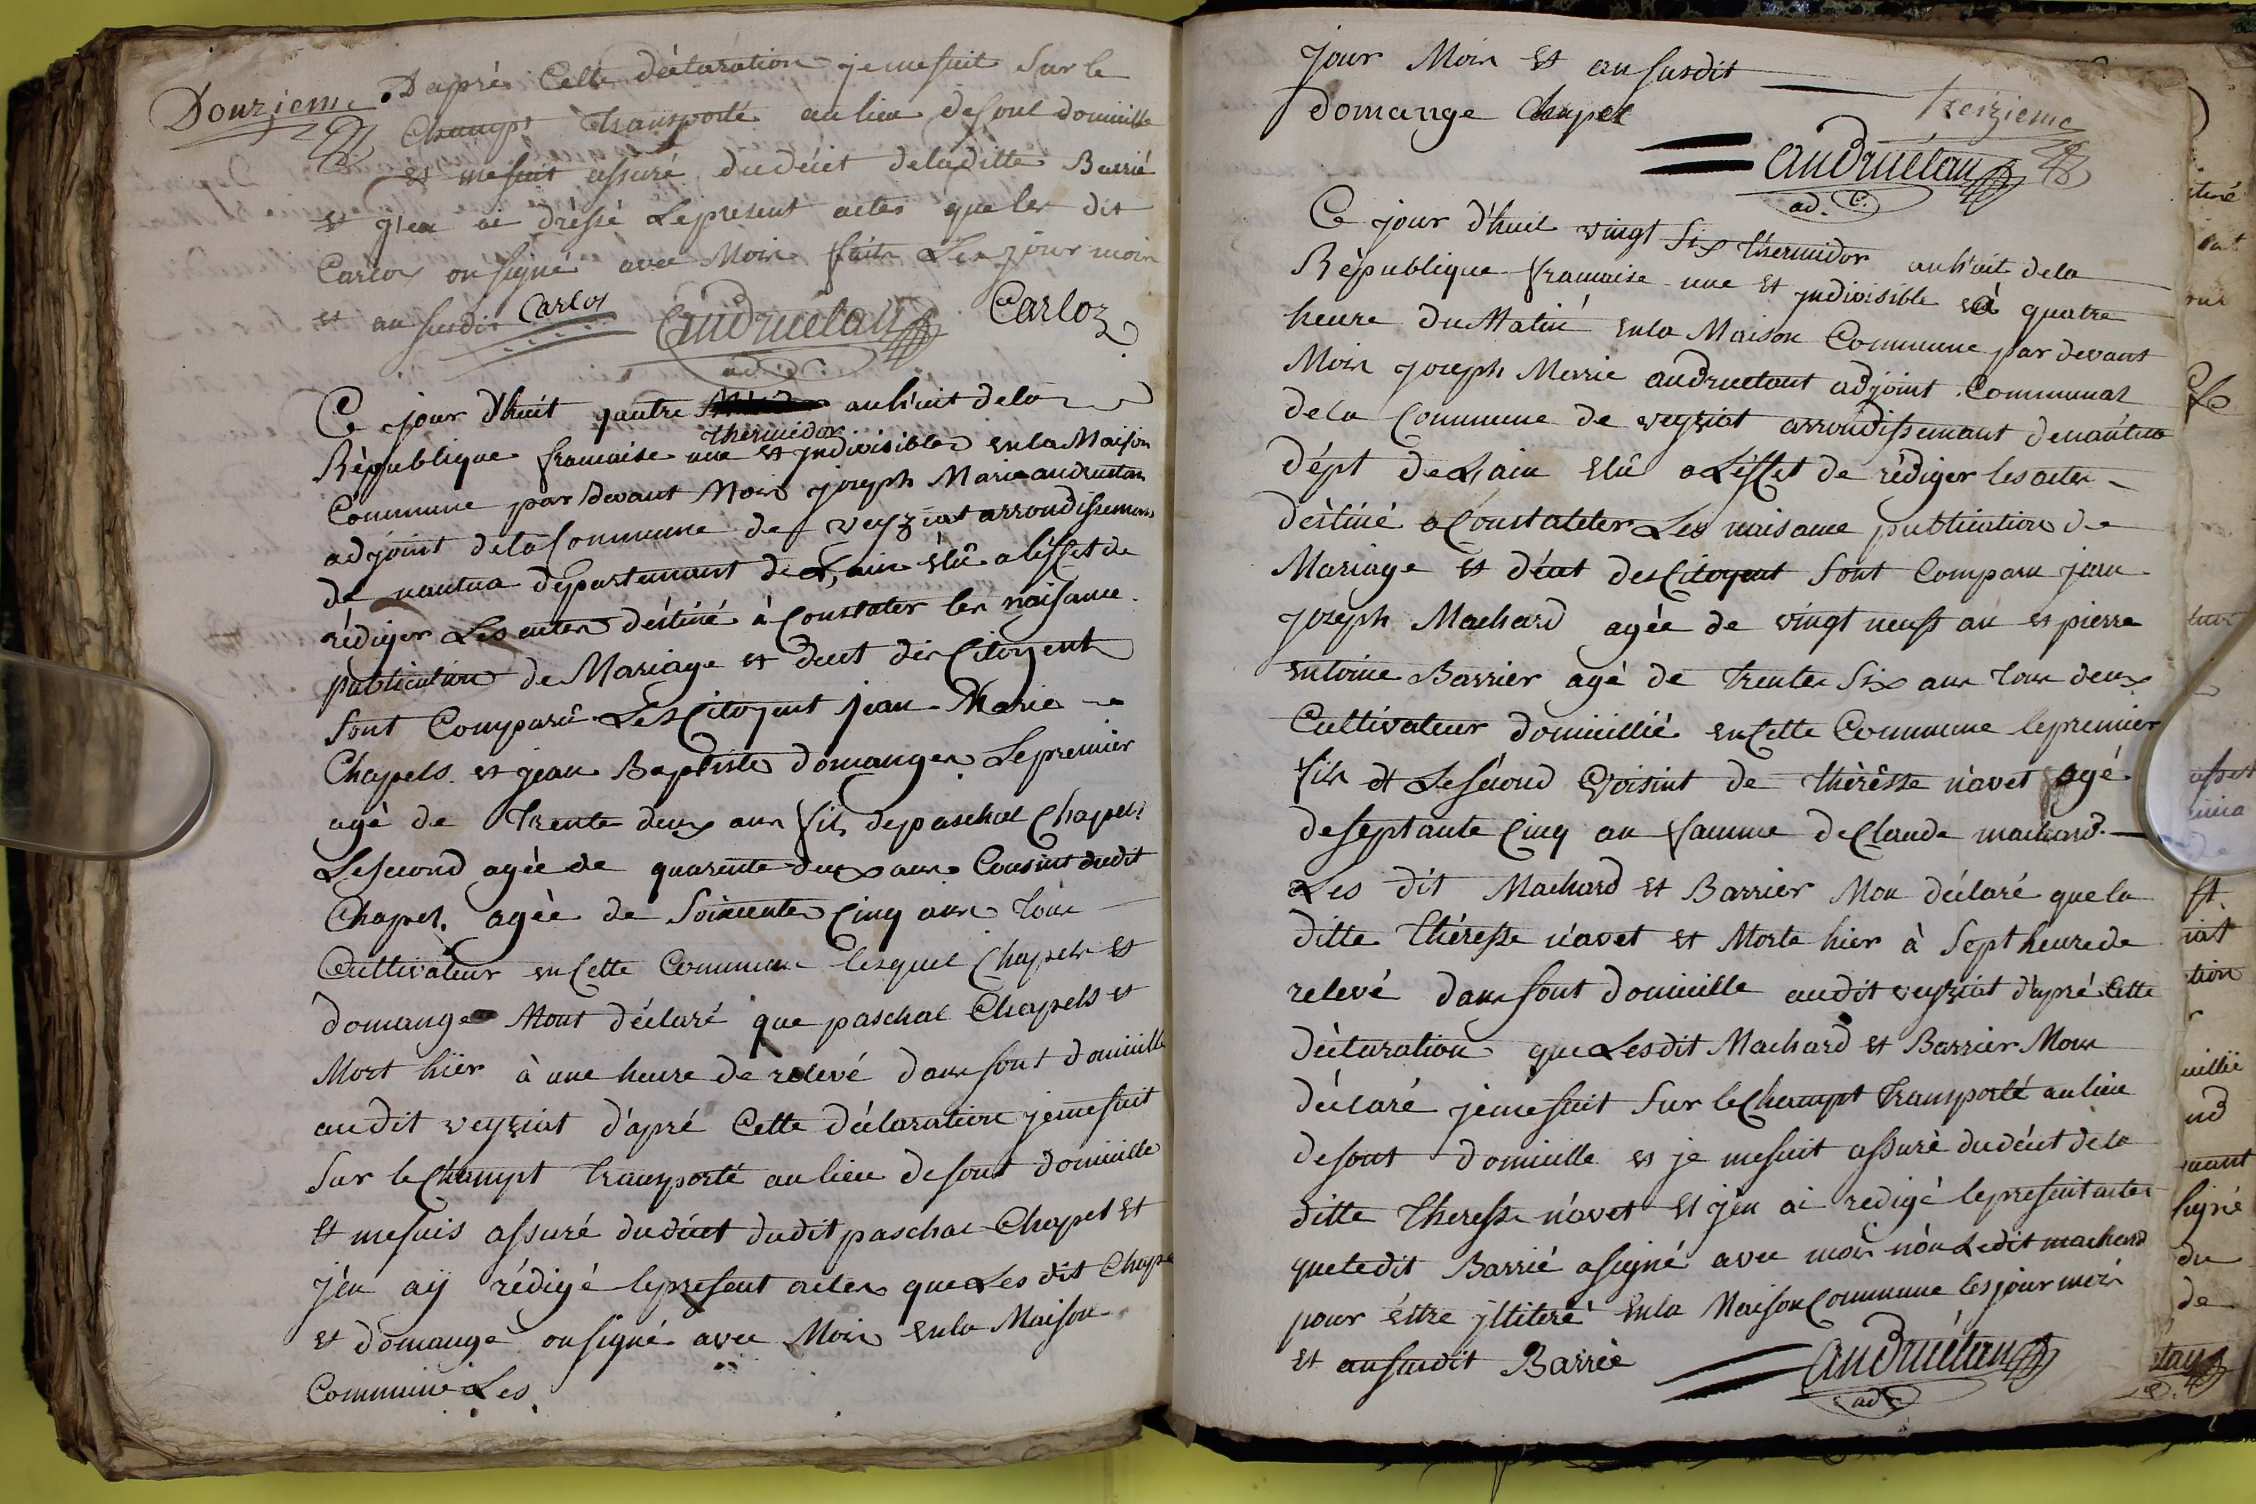 Douzieme. D'aprè Cette déclaration je me suit Sur le
Champt transporté au lieu de sont domicille
et me suit assuré du décét de la ditte Barrié
et j'en ai dréssé Le present actes que les dit
Carloz on signé avec Moix fait Les jour moix
et an susdit Carlos Andruétan Carloz
ad. C.
Ce jour d'huit quatre thermidor an huit de la
République francaise une et jndivisibles en la Maison
Commune par devant Moix joseph Marie andruetan
adjoint de la Commune de veyziat arrondissement
de nantua département de L'ain élû a l'éffet de
rédiger Les actes déstiné à Constater les naisance
publication de Mariage et decet des Citoyent
Sont Comparû Les Citoyent jean Marie
Chapels et jean Baptiste domanges Le premier
agé de trente deux ans fils de paschal Chapels
Le second agée de quarente deux ans Cousint dudit
Chapel. agèe de Soixcente Cinq ans tous
Cultivateur en Cette Commune lesquel Chapels et
domange Mont déclaré que paschal Chapels et
Mort hier à une heure de relevé dans sont domicille
audit veyziat d'apré Cette déclaration je me suit
Sur le Champt transporté au lieu de sont domicille
et me suis assuré du décet dudit paschal Chapel et
j'en aÿ rédigé le present actes que Les dit Chape
et domange on signé avec Moix en la Maison
Commune Les
jour Moix et an susdit
domange Chapel
treizieme
Andruétan
ad. C.
Ce jour d'huit vingt Six thermidor an huit de la
République francaise une et jndivisible à quatre
heure du Matin en la Maison Commune par devant
Moix joseph Marie andruetant adjoint Communal
de la Commune de veyziat arrondissemant de nantua
dépt de L'ain élû a L'éffet de rédiger les actes
déstiné a Constateter Les naisance publication de
Mariage et décet des Citoyent Sont Comparu jean
joseph Machard agée de vingt neuf an et pierre
entoine Barrier agé de trente Six ans tous deux
Cultivateur domicillié en Cette Commune le premier
fils et Le Second voisint de thérèsse navet agé
de septante Cinq an famme de Claude machard
Les dit Machard et Barrier Mon déclaré que la
ditte théresse navet et Morte hier à Sept heure de
relevé dans sont domicille audit veyziat d'apré Cette
déclaration que Les dit Machard et Barrier Mon
déclaré je me suit Sur le Champt transporté au lieu
de sont domicille et je me suit assuré du décet de la
ditte theresse navet et j'en ai redigé le present actes
que ledit Barrié a signé avec moix non Ledit machard
pour éttre jlliteré en la Maison Commune les jour mois
et an susdit Barrié Andruétan
ad. C.